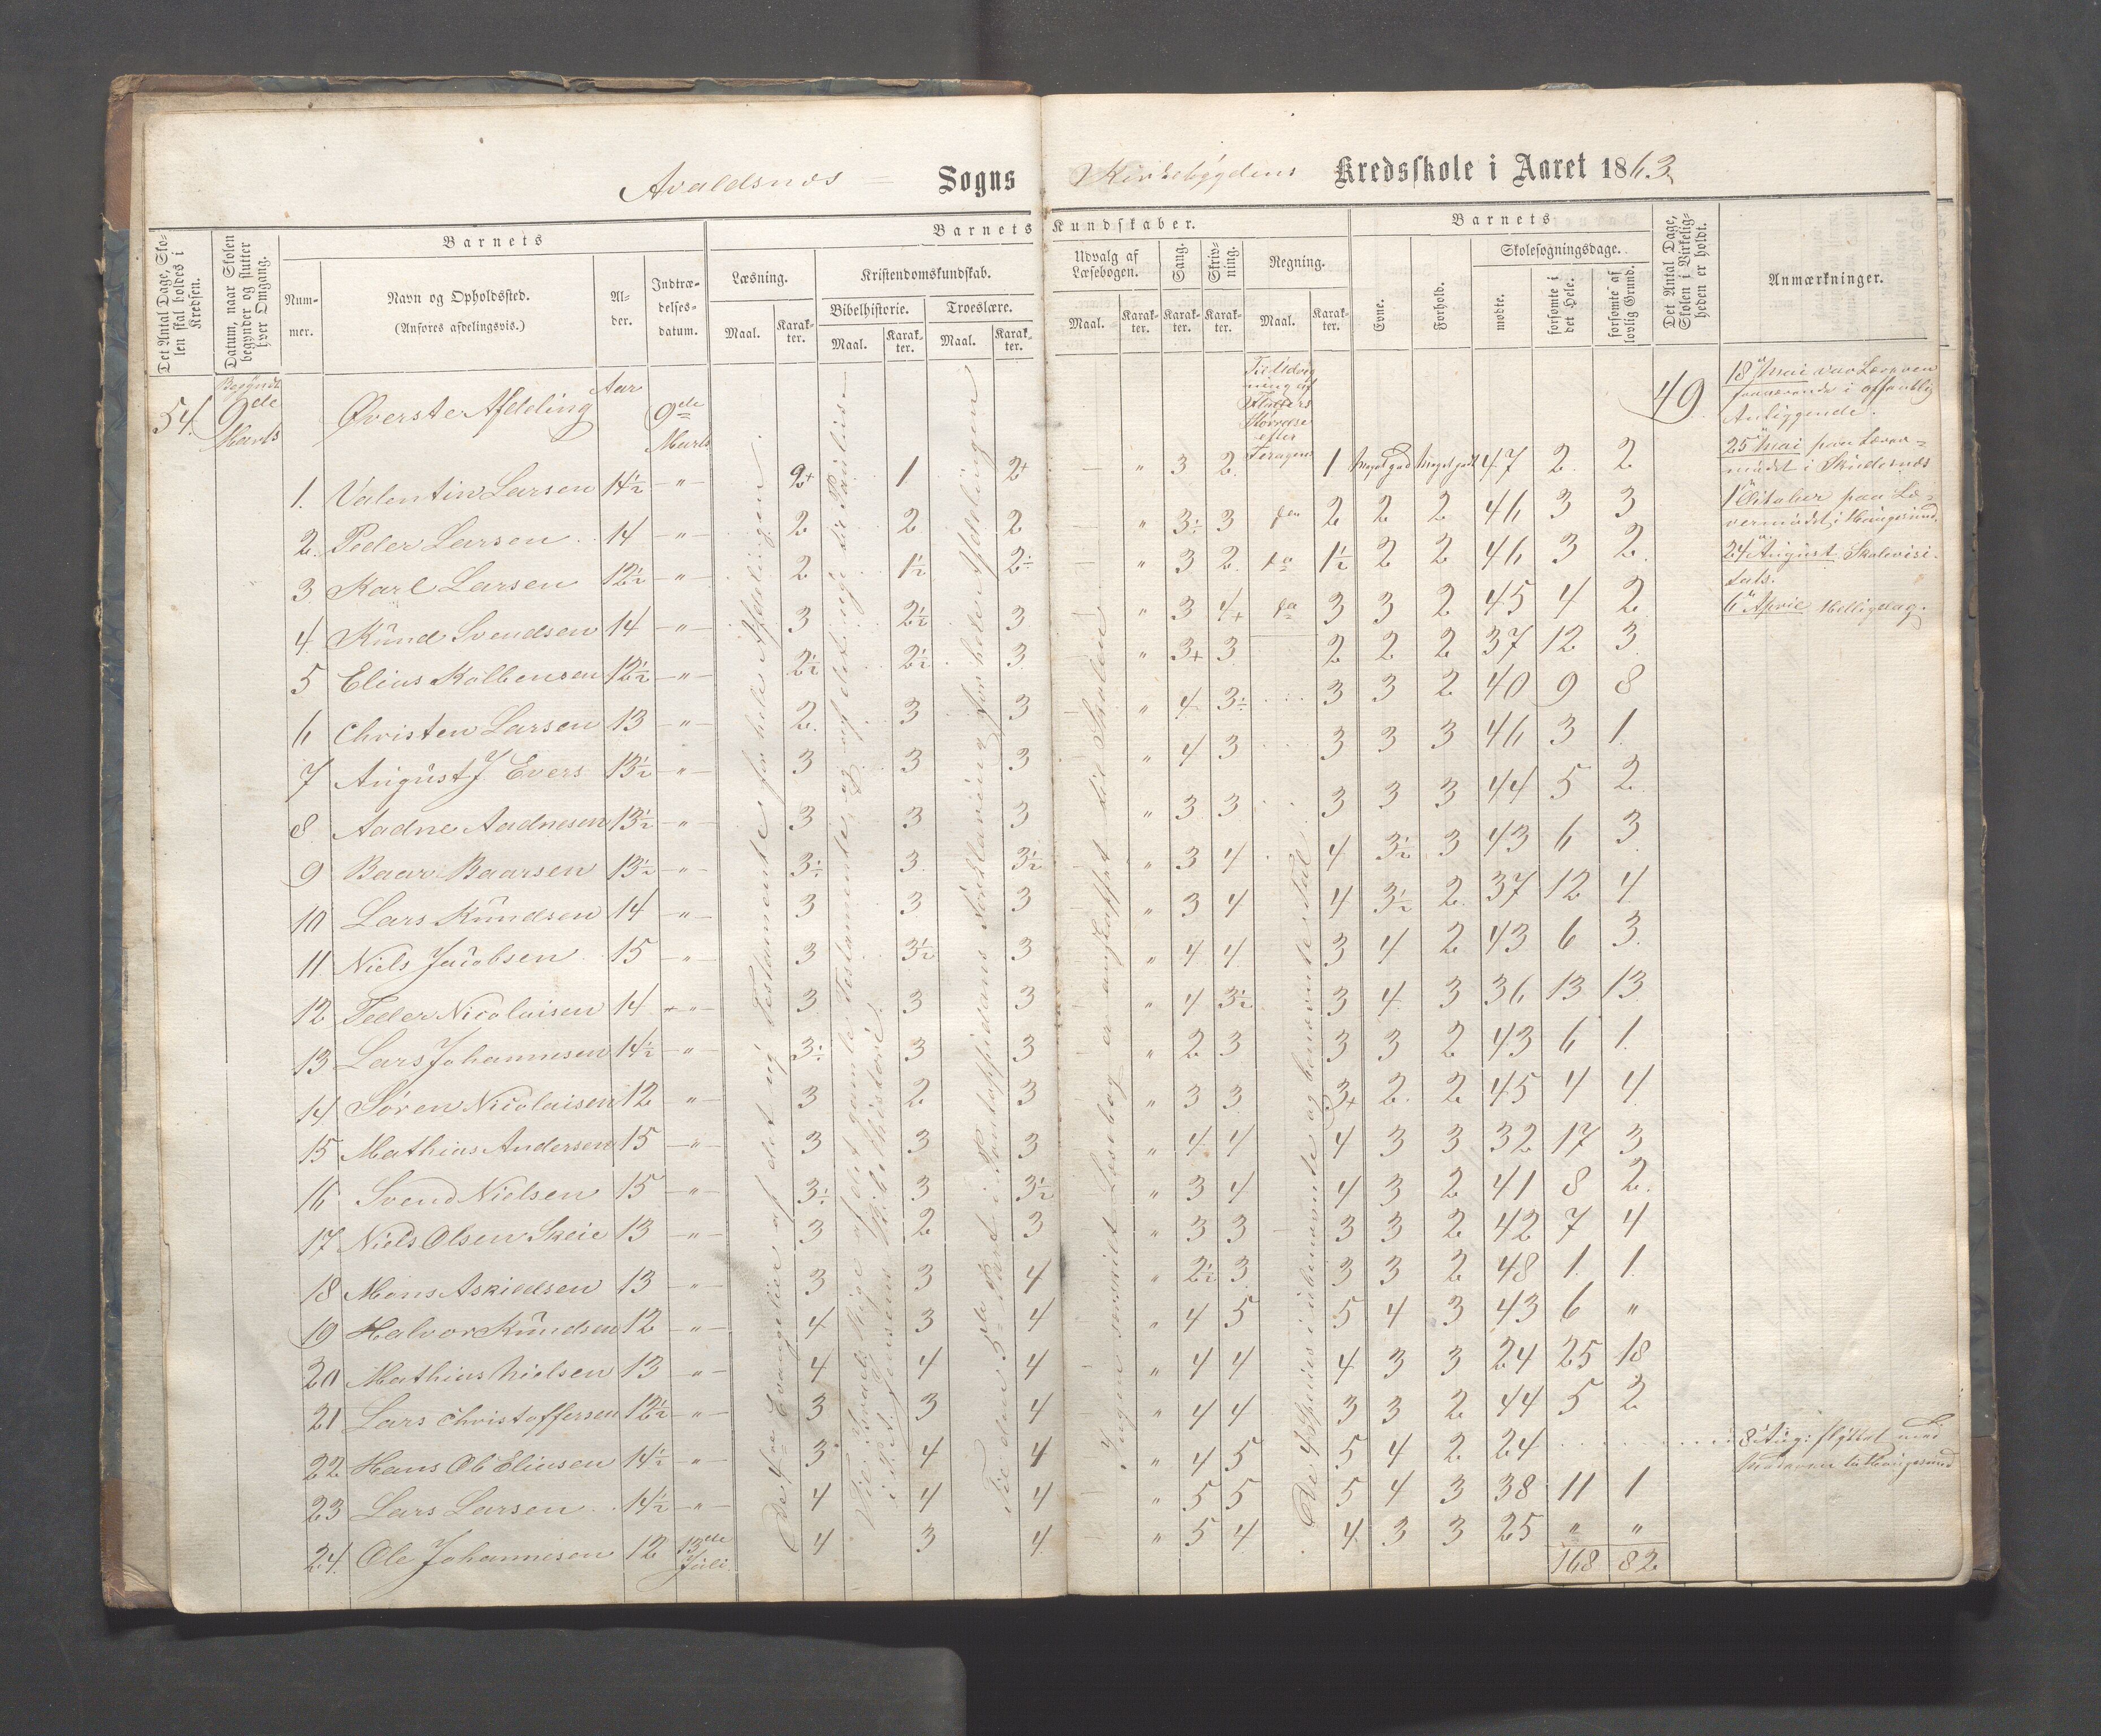 Avaldsnæs Sogns Kirkebygdens Kredsskole i Aaret 1863
Det Antal Dage, Skolen skal holdes i Kredsen.
Datum, naar Skolen begynder og slutter hver Omgang.
Barnets
Nummer.
Navn og Opholdssted.
(Anføres afdelingsvis.)
Alder.
Indtrædelsesdatum.
Barnets Kundskaber.
Læsning.
Maal. Karakter.
Kristendomskundskab.
Bibelhistorie. Troeslære.
Maal. Karakter. Maal. Karakter.
Udvalg af Læsebogen.
Maal. Karakter.
Sang. Karakter.
Skrivning. Karakter.
Regning.
Maal. Karakter.
Barnets
Evne. Forhold.
Skolesøgningsdage.
mødte. forsømte i det Hele. forsømte af lovlig Grund.
Det Antal Dage, Skolen i Virkeligheden er holdt.
Anmærkninger.
54. Begyndt 9de Marts Øverste Afdeling Aar 9de Marts 49
1. Valentin Larsen 14½ " 2+ 1 2+ " 3 2 1 Meget god Meget godt 47 2 2
2. Peder Larsen 14 " 2 2 2 " 3÷ 3 do 2 2 2 46 3 3
3 Karl Larsen 12½ " 2 1½ 2÷ " 3 2 do 1½ 2 2 46 3 2
4. Knud Svendsen 14 " 3 2½ 3 " 3 4+ do 3 3 2 45 4 2
5 Elias Kolbensen 12½ " 2½ 2½ 3 " 3+ 3 2 2 2 37 12 3
6 Christen Larsen 13 " 2 3 3 " 4 3÷ 3 3 2 40 9 8
7 August J Evers 13½ " 3 3 3 " 4 3 3 3 3 46 3 1
8 Aadne Aadnesen 13½ " 3 3 3 " 3 3 3 3 3 44 5 2
9 Baar Baarsen 13½ " 3÷ 3 3½ " 3 4 4 3½ 3 43 6 3
10 Lars Knudsen 14 " 3 3 3 " 3 4 4 3½ 2 37 12 4
11 Niels Jacobsen 15 " 3 3½ 3 " 4 4 3 4 2 43 6 3
12 Peder Nicolaisen 14 + " 3 3 3 " 4 3½ 3 4 3 36 13 13
13 Lars Johannesen 14½ " 3÷ 3 3 " 2 3 3 3 2 43 6 1
14 Søren Nicolaisen 12 " 3 2 3 " 3 3 3+ 2 2 45 4 4
15 Mathias Andersen 15 " 3 3 3 " 4 4 4 3 3 32 17 3
16 Svend Nielsen 15 " 3÷ 3 3½ " 3 4 4 3 2 41 8 2
17 Niels Olsen Skeie 13 " 3 2 3 " 3 3 3 3 2 42 7 4
18 Mons Askildsen 13 " 3 3 4 " 2½ 3 3 3 2 48 1 1
19 Halvor Knudsen 12 " 4 3 4 " 4 5 5 4 3 43 6 "
20 Mathias Nielsen 13 " 4 4 4 " 4 4 4 3 3 24 25 18
21 Lars Christoffersen 12½ " 3 3 4 " 4 4 3 3 2 44 5 2
22 Hans Ob Eliasen 14½ " 3 4 4 " 4 5 5 4 2 24
23 Lars Larsen 14½ " 4 4 4 " 5 5 5 4 3 38 11 1
24. Ole Johannesen 12 13de Juli 4 3 4 " 5 4 4 3 3 25 " "
168 82
De 4re Evangelier af det ny Testamente for hele Afdelingen
af det gamle Testamente og af det nye til Paulus
i Bibelhistorie
Til den 5te Part i Pontoppidans Forklaring for hele Afdelingen
Ingen særskilt Læsebog er anskaffet til Skolen
De 4 Species i ubenævnte og benævnte Tal
Til Udregning af Fladers Størrelse efter
18de Mai var Læreren fraværende i offentlig Anliggende.
25 Mai paa Lærermødet i Skudesnæs
1 October paa Lærermødet i Haugesund.
24 August Skolevisitats.
6 April Helligdag.
8 Aug: flyttet med til Haugesund